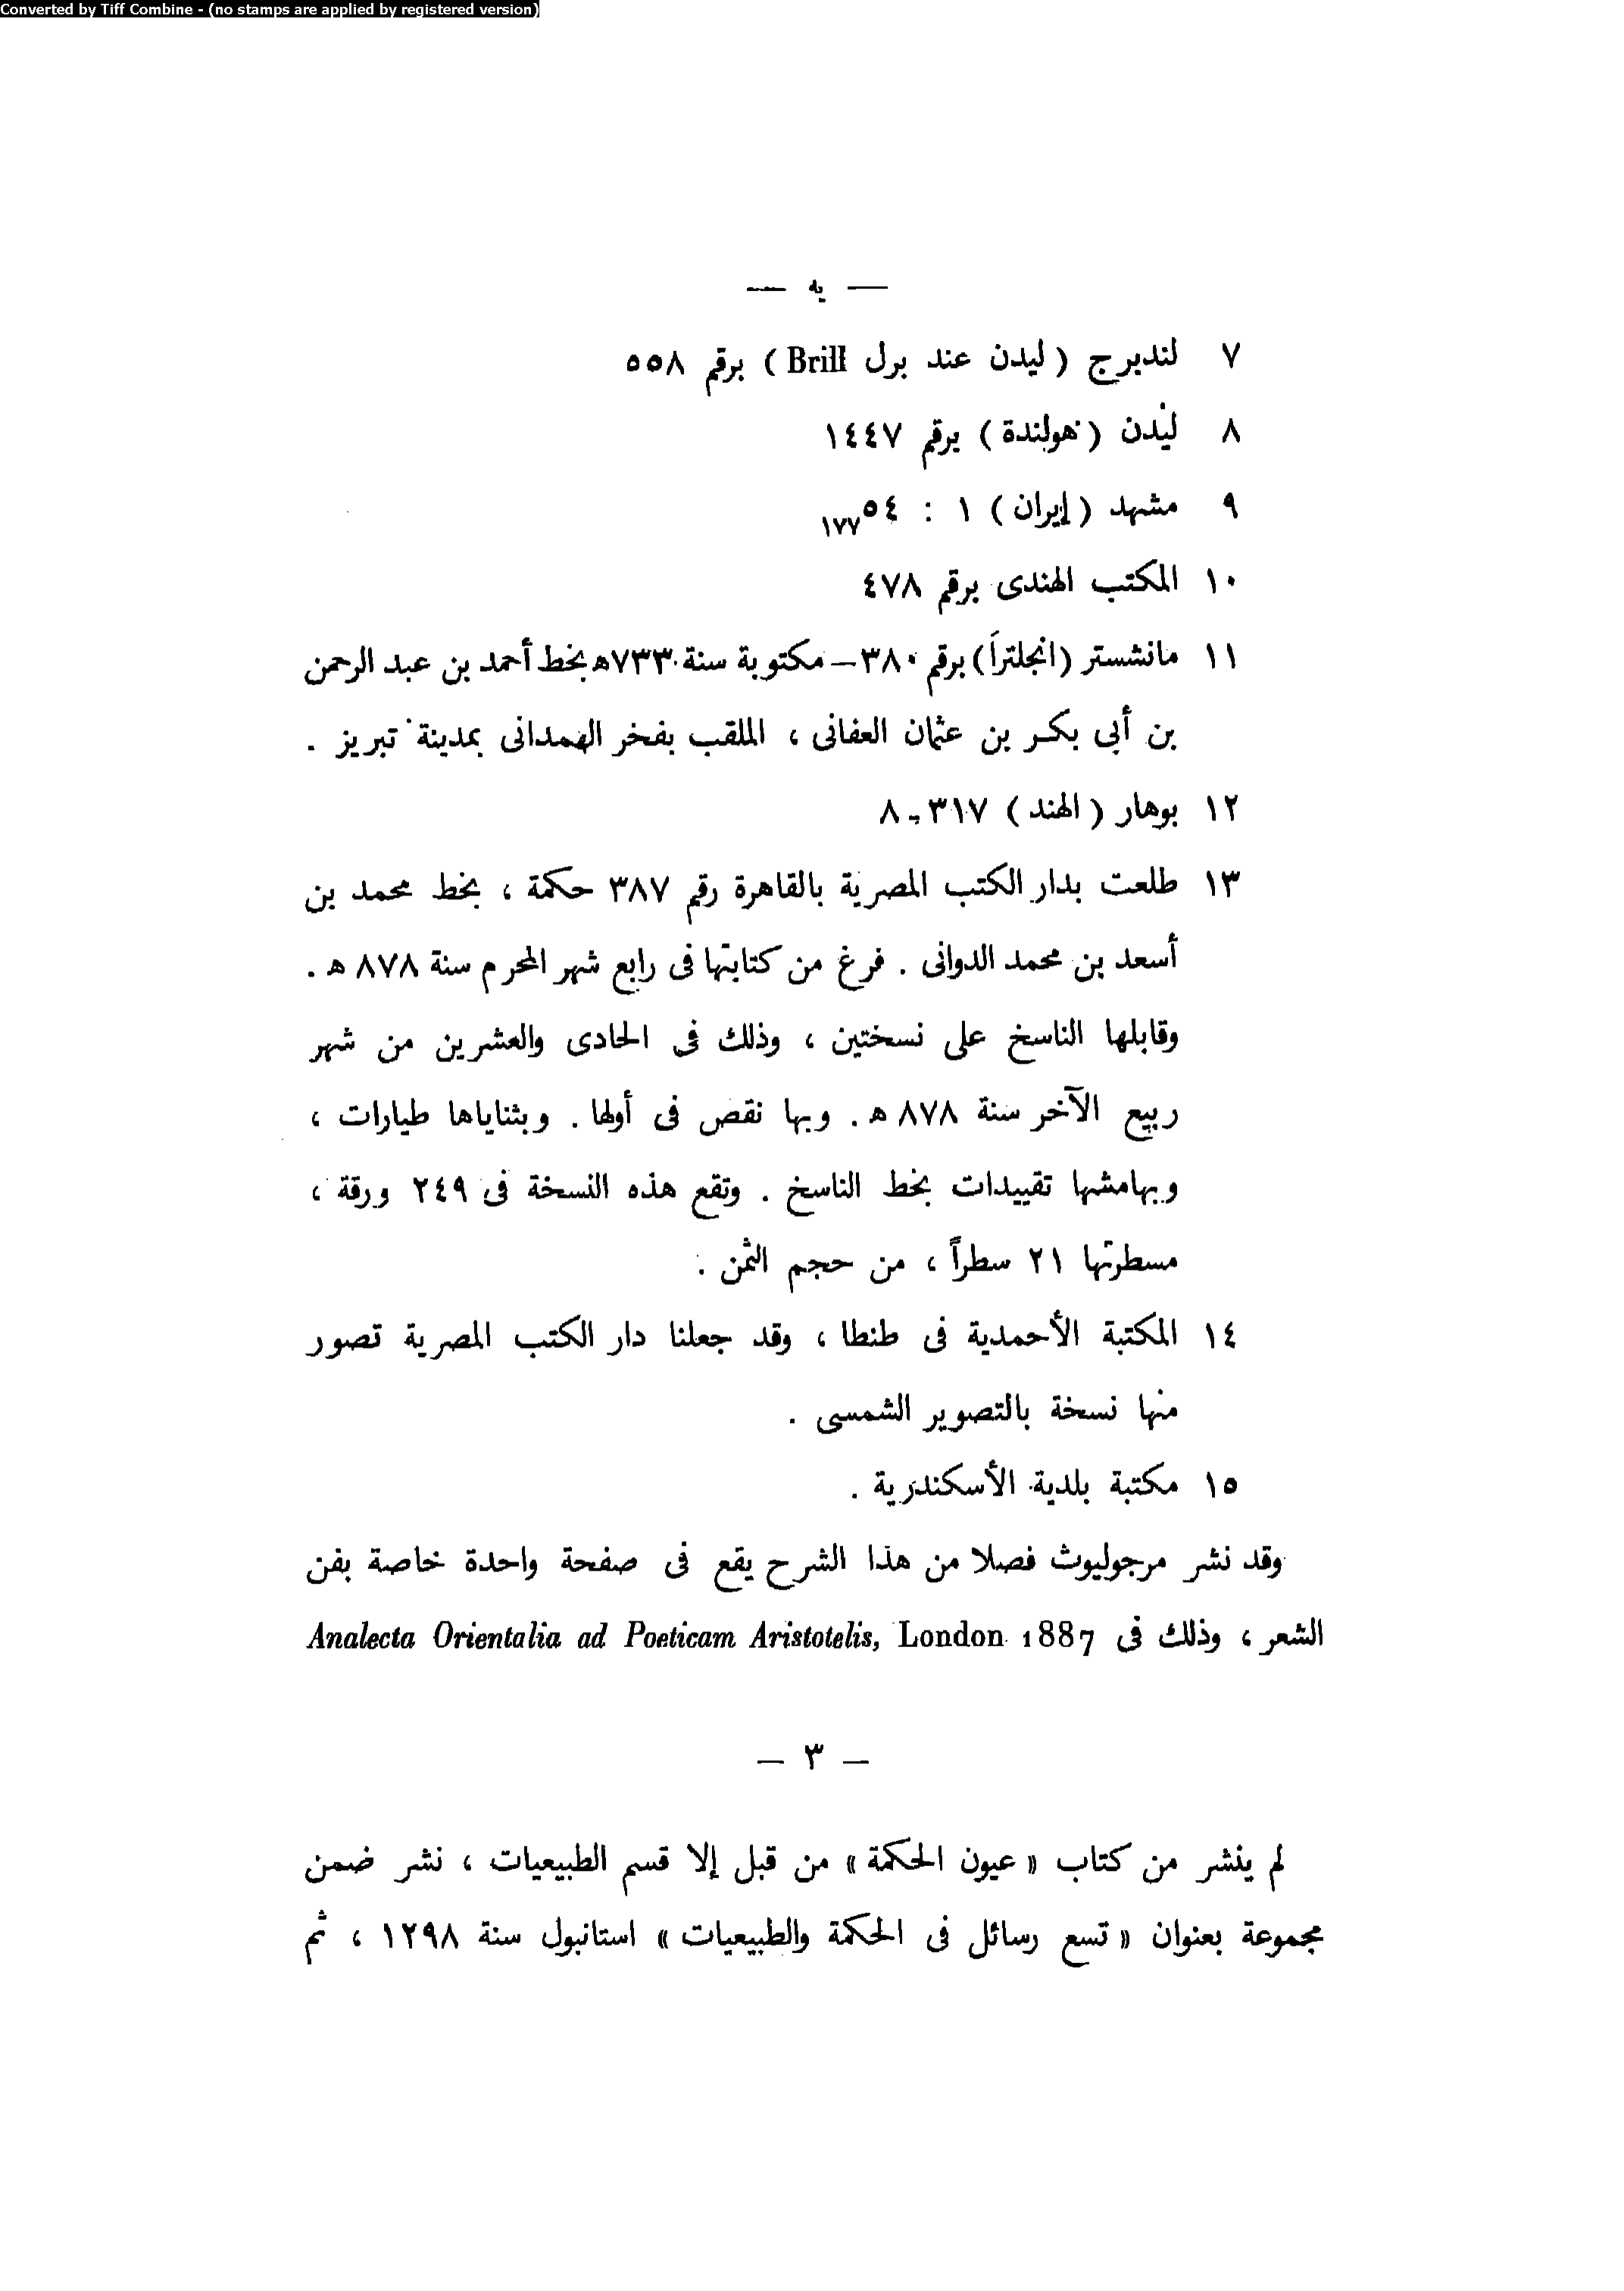 Converted by Tiff Combine - (no stamps are applied by registered version)
— يه —
٧ لندبرج ( ليدن عند برل Brill ) برقم ٥٥٨
٨ ليدن ( هولندة ) برقم ١٤٤٧
٩ مشهد ( إيران ) ١ : ٥٤ ١٧٧
١٠ المكتب الهندى برقم ٤٧٨
١١ مانشستر (انجلترا) برقم ٣٨٠ – مكتوبة سنة ٧٣٣ ه بخط أحمد بن عبد الرحمن
بن أبى بكر بن عثمان العفانى ، الملقب بفخر الهمدانى بمدينة تبريز .
١٢ بوهار ( الهند ) ٣١٧ - ٨
١٣ طلعت بدار الكتب المصرية بالقاهرة رقم ٣٨٧ حكمة ، بخط محمد بن
أسعد بن محمد الدوانى . فرغ من كتابتها فى رابع شهر المحرم سنة ٨٧٨ ه .
وقابلها الناسخ على نسختين ، وذلك فى الحادى والعشرين من شهر
ربيع الآخر سنة ٨٧٨ ه . وبها نقص فى أولها . وبثناياها طيارات ،
وبهامشها تقييدات بخط الناسخ . وتقع هذه النسخة فى ٢٤٩ ورقة ،
مسطرتها ٢١ سطراً ، من حجم الثمن .
١٤ المكتبة الأحمدية فى طنطا ، وقد جعلنا دار الكتب المصرية تصور
منها نسخة بالتصوير الشمسى .
١٥ مكتبة بلدية الأسكندرية .
وقد نشر مرجوليوث فصلا من هذا الشرح يقع فى صفحة واحدة خاصة بفن
الشعر ، وذلك فى Analecta Orientalia ad Poeticam Aristotelis, London 1887
– ٣ –
لم ينشر من كتاب « عيون الحكمة » من قبل إلا قسم الطبيعيات ، نشر ضمن
مجموعة بعنوان « تسع رسائل فى الحكمة والطبيعيات » استانبول سنة ١٢٩٨ ، ثم